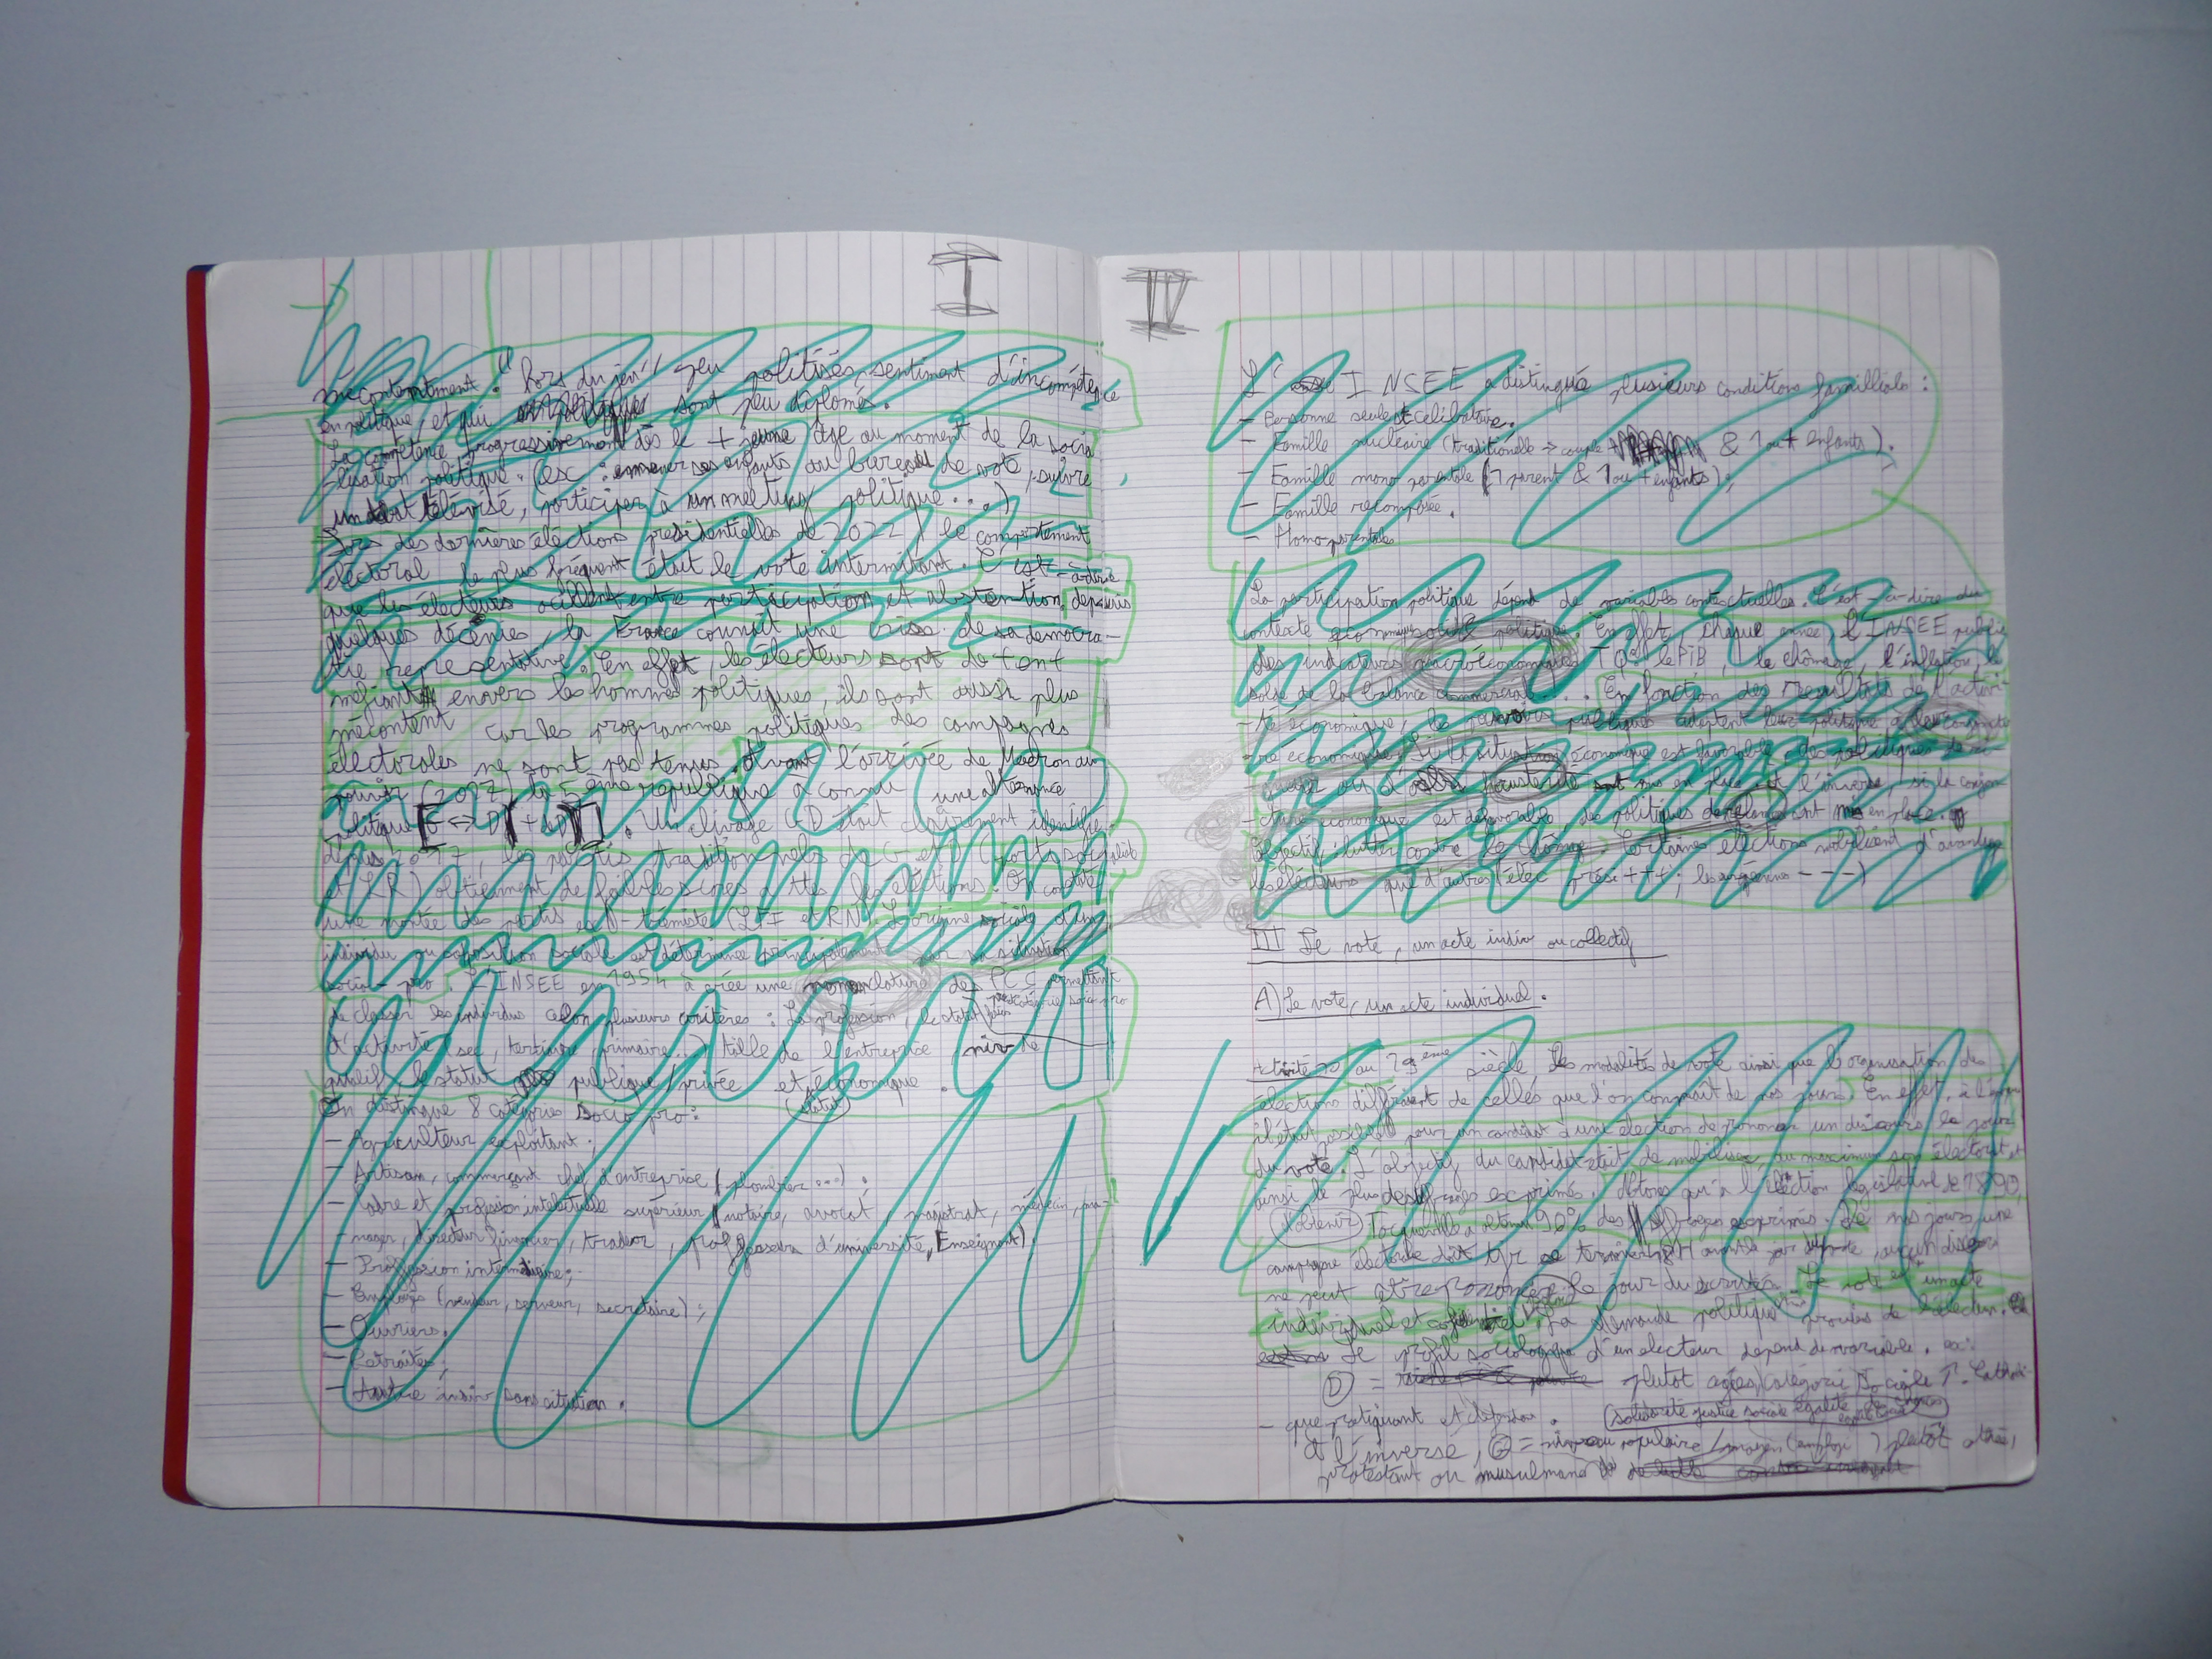 I
mécontentment. "hors du jeu" peu politisés, sentiment d'incompétence
en politique, et qui sont peu diplomés.
La compétence progressivement dès le + jeune âge au moment de la socia
-lisation politique. (ex : emmener ses enfants au bureau de vote, suivre
un débat télévisé, participer à un melting politique...)
Lors des dernières éléctions presidentielles de 2022, le comportement
électoral le plus fréquent était le vote intermitant. C'est-à-dire
que les électeurs ocillent entre participation et abstention, depuis
quelques décénies, la France connait une crise de sa démocra-
tie representative. En effet, les électeurs sont de + en +
méfiant envers les hommes politiques, ils sont aussi plus
mécontent car les programmes politiques des campagnes
électorales ne sont pas tenus. Avant l'arrivée de Macron au
pouvoir (2017) la 5ème république à connu une alternance
politique. Un clivage G D était clairement identifié.
depuis 2017, les partis traditionnels de G et D (parti socialiste
et LR) obtiennent de faibles scores à ttes les éléctions. On constate
une montée des partis extrémistes (LFI et RN). L'origine sociale d'un
individu ou sa position sociale est déterminée principalement par sa situation
socio-pro. L'INSEE en 1954 a créé une nomenclature des PCS permettant
de classer les individus selon plusieurs critères : La profession, le statut
d'activité (sec, tertiaire, primaire...) taille de l'entreprise, niv de
qualif le statut publique/privée et économique.
(statut)
On distingue 8 catégories socio pro :
- Agriculteur exploitant ;
- Artisan, commerçant chef d'entreprise (plombier...).
- Cadre et profession intelectuelle supérieur (notaire, avocat, magistrat, médecin, ma-
- nager, directeur financier, trader, professeur d'université, Enseignant)
- Proffession intermédiaire ;
- Employés (vendeur, serveur, secrétaire) ;
- Ouvriers.
- Retraités ;
- Autre indiv sans situation.
IV
L' INSEE a distingué plusieurs conditions familliales :
- Personne seule et célibataire.
- Famille nucléaire (traditionelle → couple & 1 ou + enfants).
- Famille mono parentale (1 parent & 1 ou + enfants) ;
- Famille recomposée.
- Homoparentales
La participation politique dépend de variables contextuelles. C'est-à-dire du
contexte politique. En effet, chaque année l'INSEE publie
des indicateurs macroéconomiques le PIB, le chômage, l'inflation, le
solde de la balance commerciale... En fonction des résultats de l'activi-
-té économique, les pouvoirs publiques adaptent leur politique à la conjonctu
-re économique. Si la situation économique est favorable des politiques de ri-
-gueur ou d'austérité sont mis en place et l'inverse, si la conjon-
-cture économique est défavorable des politiques de relance sont mis en place.
objectif : lutter contre le chômage. Certaines elections mobilisent d'avantage
les électeurs que d'autres (élec prési +++ ; les européennes ---)
III Le vote, un acte indiv ou collectif
A) Le vote, un acte individuel.
au 19ème siècle les modalités de vote ainsi que l'organisation des
élections différaient de celles que l'on connait de nos jours. En effet, à l'époque
il était possible pour un candidat à une élection de prononcer un discours le jour
du vote. L'objectif du candidat était de mobiliser au maximum son électorat, et
ainsi le plus de suffrages exprimés. Alors qu'à l'élection
(d'obtenir) Tocqueville a obtenu 90% des suffrages exprimés. De nos jours, une
campagne électorale doit tjr se terminer avant le jour du vote, aucun discours
ne peut être prononcé le jour du scrutin. Le vote est un acte
individuel et confidentiel. La demande politique provies de l'électeur.
Le profil sociologique d'un electeur dépend de variable. ex :
D = plutot agées, catégorie sociale ↑. Catholi-
- que pratiquant et
(solidarité justice sociale égalité de chances)
à l'inverse, G = niveau populaire / moyen (employ ) plutôt
protestant ou musulmane